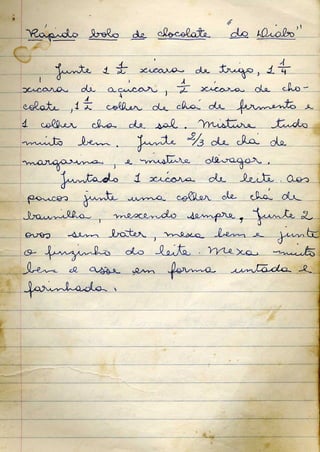 Rápido bolo de chocolate "do Diabo"
Junte 1 1/2 xícara de trigo, 1 1/4
xícara de açúcar, 1/2 xícara de cho-
colate, 1 1/2 colher de chá de fermento e
1 colher chá de sal. Misture tudo
muito bem. Junte 2/3 de chá de
margarina, e misture devagar.
Juntado 1 xícara de leite. aos
poucos junte uma colher de chá de
baunilha, mexendo sempre, Junte 2
ovos sem bater, mexa bem e junte
o finzinho do leite. Mexa muito
bem e asse em forma untada e
farinhada.